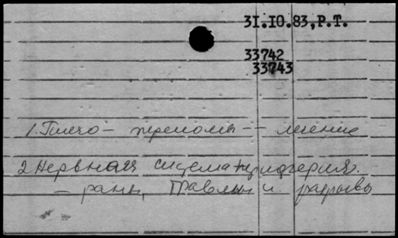 31.10.83, P.T.
33742
33743
1. Плечо - переломы - лечение
2. Нервная система периферия.
- раны, травмы и разрывы